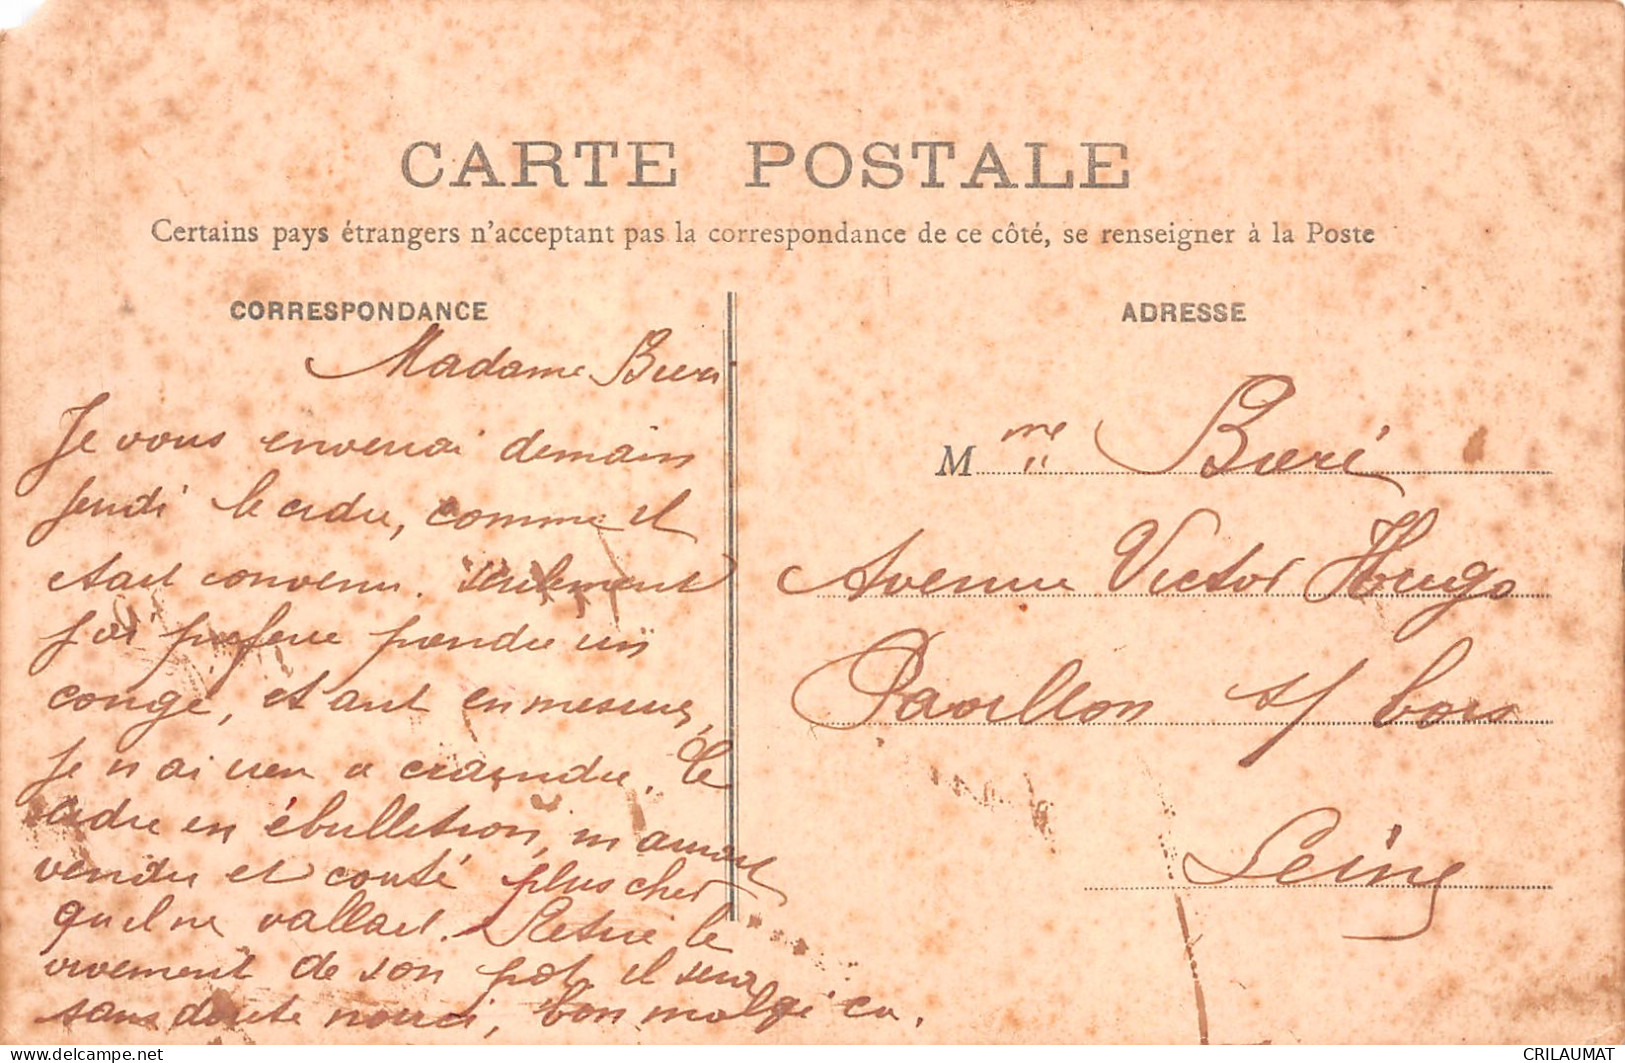 CARTE POSTALE
Certains pays étrangers n'acceptant pas la correspondance de ce côté, se renseigner à la Poste
CORRESPONDANCE
ADRESSE
Madame Bieri
Je vous enverrai demain
Jeudi le cidre, comme il
etait convenu. Seulement
j'ai prefere prendre un
congé, etant en mesure,
je n ai rien a craindre. Le
cidre en ébulletion, m aurait
vendu et couté plus cher
qu il ne vallait. Retire le
vivement de son pot, il sera
sans doute nourci, bon malgré ca.
Mme Bieri
Avenue Victor Hugo
Pavillon s/ bois
Seine
CRILAUMAT